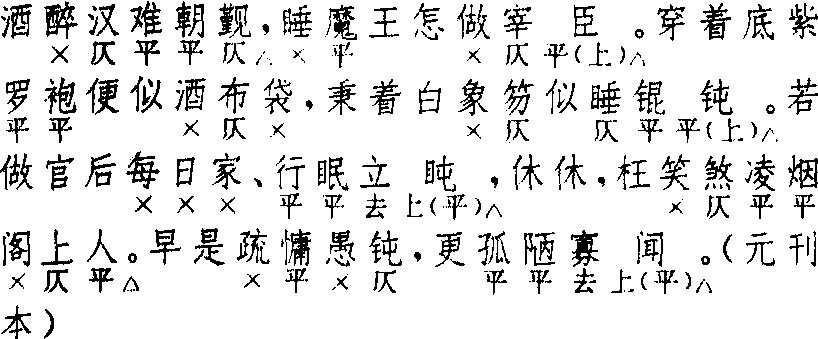 酒醉汉难朝觐，睡魔王怎做宰臣。穿着底紫
×仄平平仄△×平×仄平(上)△
罗袍便似酒布袋，秉着白象笏似睡锟钝。若
平平×仄××仄仄平平(上)△
做官后每日家、行眠立盹，休休，枉笑煞凌烟
×××平平去上(平)△×仄平平
阁上人。早是疏慵愚钝，更孤陋寡闻。(元刊
×仄平△×平×仄平平去上(平)△
本)